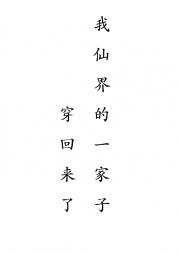 我仙界的一家子
穿回来了